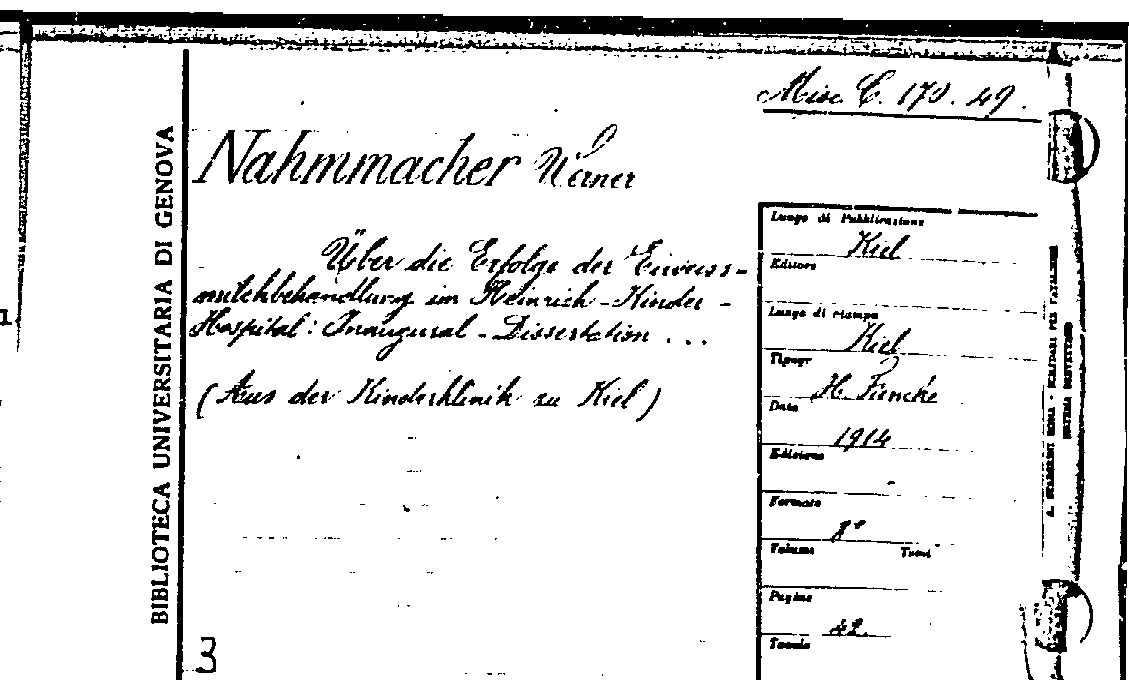 Misc. C. 170. 49.
BIBLIOTECA UNIVERSITARIA DI GENOVA
Nahmmacher Werner
Über die Erfolge der Eiweiss-
milchbehandlung im Heinrich-Kinder-
Hospital: Inaugural-Dissertation ...
(Aus der Kinderklinik zu Kiel)
Luogo di Pubblicazione
Kiel
Editore
Luogo di stampa
Kiel
Tipogr
H. Fiencke
Data
1914
Edizione
Formato
8°
Volume Tomi
Pagine
42.
Tavole
3
1